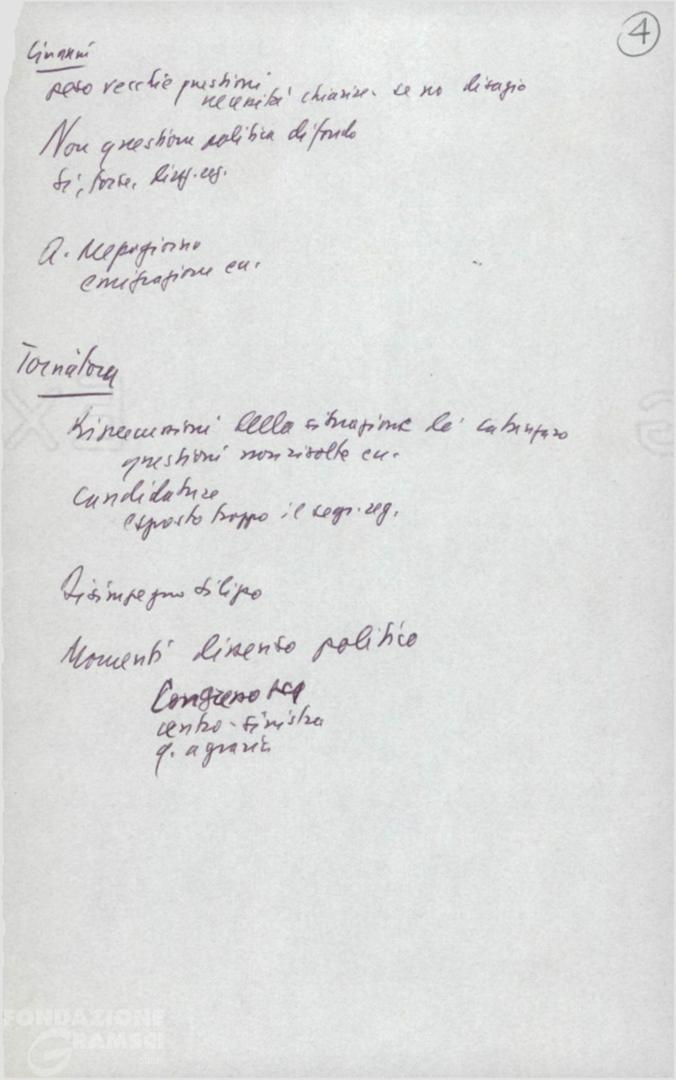 4
Cinanni
peso vecchie questioni
necessità chiarire. se no disagio
Non questione politica di fondo
Sì, forse, direz. reg.
Q. Mezzogiorno
emigrazione ecc.
Tornatora
Ripercussioni della situazione di Catanzaro
questioni non risolte ecc.
Candidature
esposto troppo il segr. reg.
Disimpegno Silipo
Momenti dissenso politico
Congresso
centro-sinistra
q. agraria
FONDAZIONE
GRAMSCI